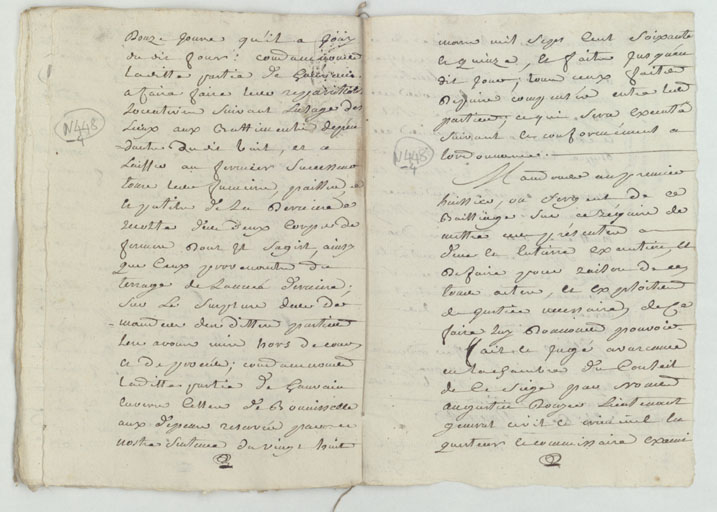 Douze jours qu'il a joüi
du dit four: condamnons
Laditte partie de
a faire faire les reparations
Locatives suivant Lusage des
Lieux aux Battiments depen
dants du dit bail, et a
Laisser au fermier successeur
tous les fumiers, pailles, et
de La Derniere
recolte des deux Corps de
ferme Dont Il Sagit, ainsy
que Ceux provenants du
terrage de
Sur Le Surplus des De
mandes des dittes parties
Les avons mis hors de cour
et de procès; condamnons
Laditte partie de Gauvain
Envers Celles de
aux depens reservés par
nostre Sentence du vingt huit
N448
4
mars mil Sept Cent Soixante
et quinze, et faits jusqu'au
dit jour, tous ceux faits
Depuis compensés entre les
parties; ce qui Sera executé
suivant et conformement a
Lordonnance.
Mandons au premier
huissier, ou Sergent de ce
Bailliage Sur ce requis de
mettre ces presentes a
Deue et entiere execution, et
De faire pour raison de ce
tous actes, et exploits
de justice necessaires, de Ce
faire Luy Donnons pouvoir.
Fait et Jugé
en La chambre du Conseil
de Ce Siege par Nous
Augustin Lieutenant
general civil et criminel En
questeur et commissaire exami
N448
4